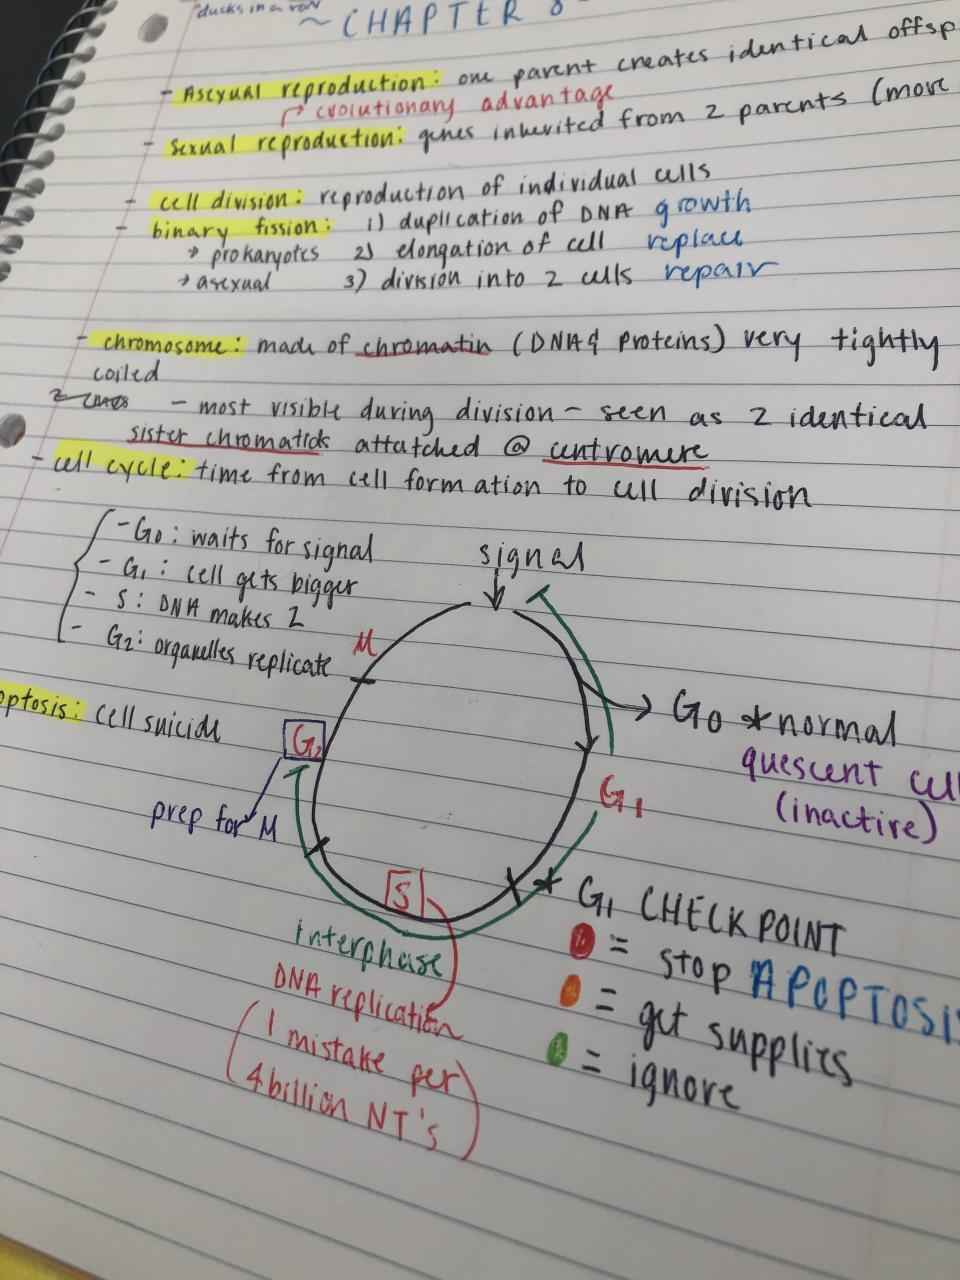 "ducks in a row"
~ CHAPTER 8
- Asexual reproduction: one parent creates identical offsp
evolutionary advantage
- Sexual reproduction: genes inherited from 2 parents (more
- cell division: reproduction of individual cells
- binary fission: 1) duplication of DNA growth
→ prokaryotes 2) elongation of cell replace
→ asexual 3) division into 2 cells repair
- chromosome: made of chromatin (DNA & proteins) very tightly
coiled
- most visible during division - seen as 2 identical
sister chromatids attatched @ centromere
- cell cycle: time from cell formation to cell division
- G0: waits for signal
- G1: cell gets bigger
- S: DNA makes 2
- G2: organelles replicate
signal
M
optosis: cell suicide
G0 *normal
quescent cell
(inactive)
G2
prep for M
G1
S
* G1 CHECKPOINT
= stop APOPTOSIS
= get supplies
= ignore
interphase
DNA replication
(1 mistake per
4 billion NT's)